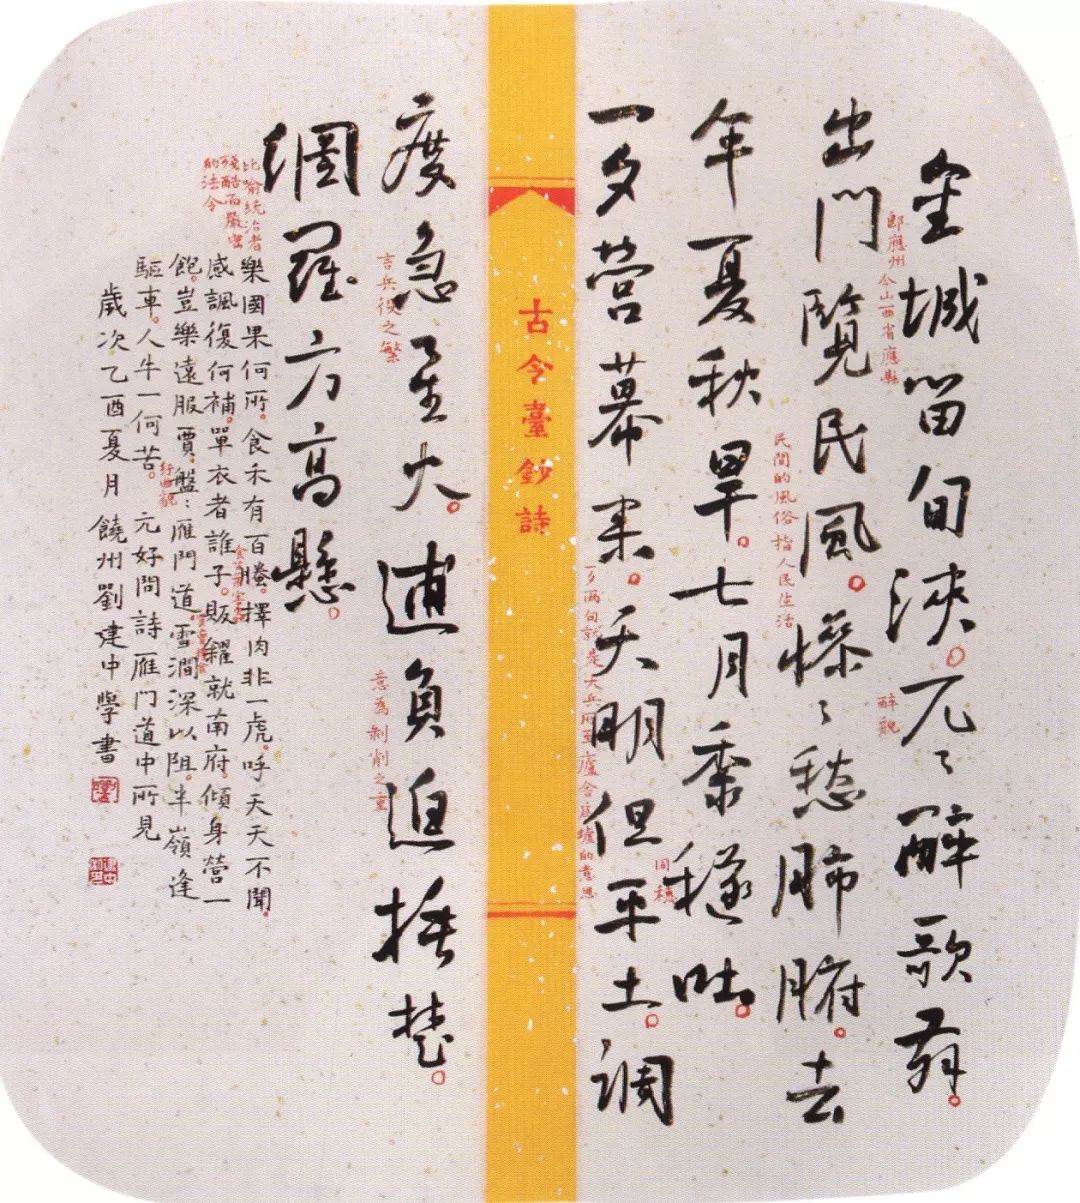 金城留旬浹。兀々醉歌舞。
即應州 今山西省應縣
醉貌
出門覽民風。慘々愁肺腑。去
民間的風俗指人民生活
年夏秋旱。七月黍穟吐。
同穗
一夕营幕来。天明但平土。調
一夕兩句就是大兵所至廬舍成墟的意思
古今臺鈔詩
度急星火。逋負迫捶楚。
言兵役之繁
意為剝削之重
網羅方高懸。
比喻統治者
殘酷而嚴密
的法令
樂國果何所。食禾有百螣。擇肉非一虎。呼天天不聞。
感諷復何補。單衣者誰子。販糴就南府。傾身營一
飽。豈樂遠服賈。盤々雁門道。雪澗深以阻。半嶺逢
紆曲貌
驅車。人牛一何苦。 元好問詩雁门道中所見
歲次乙酉夏月 饒州劉建中學書